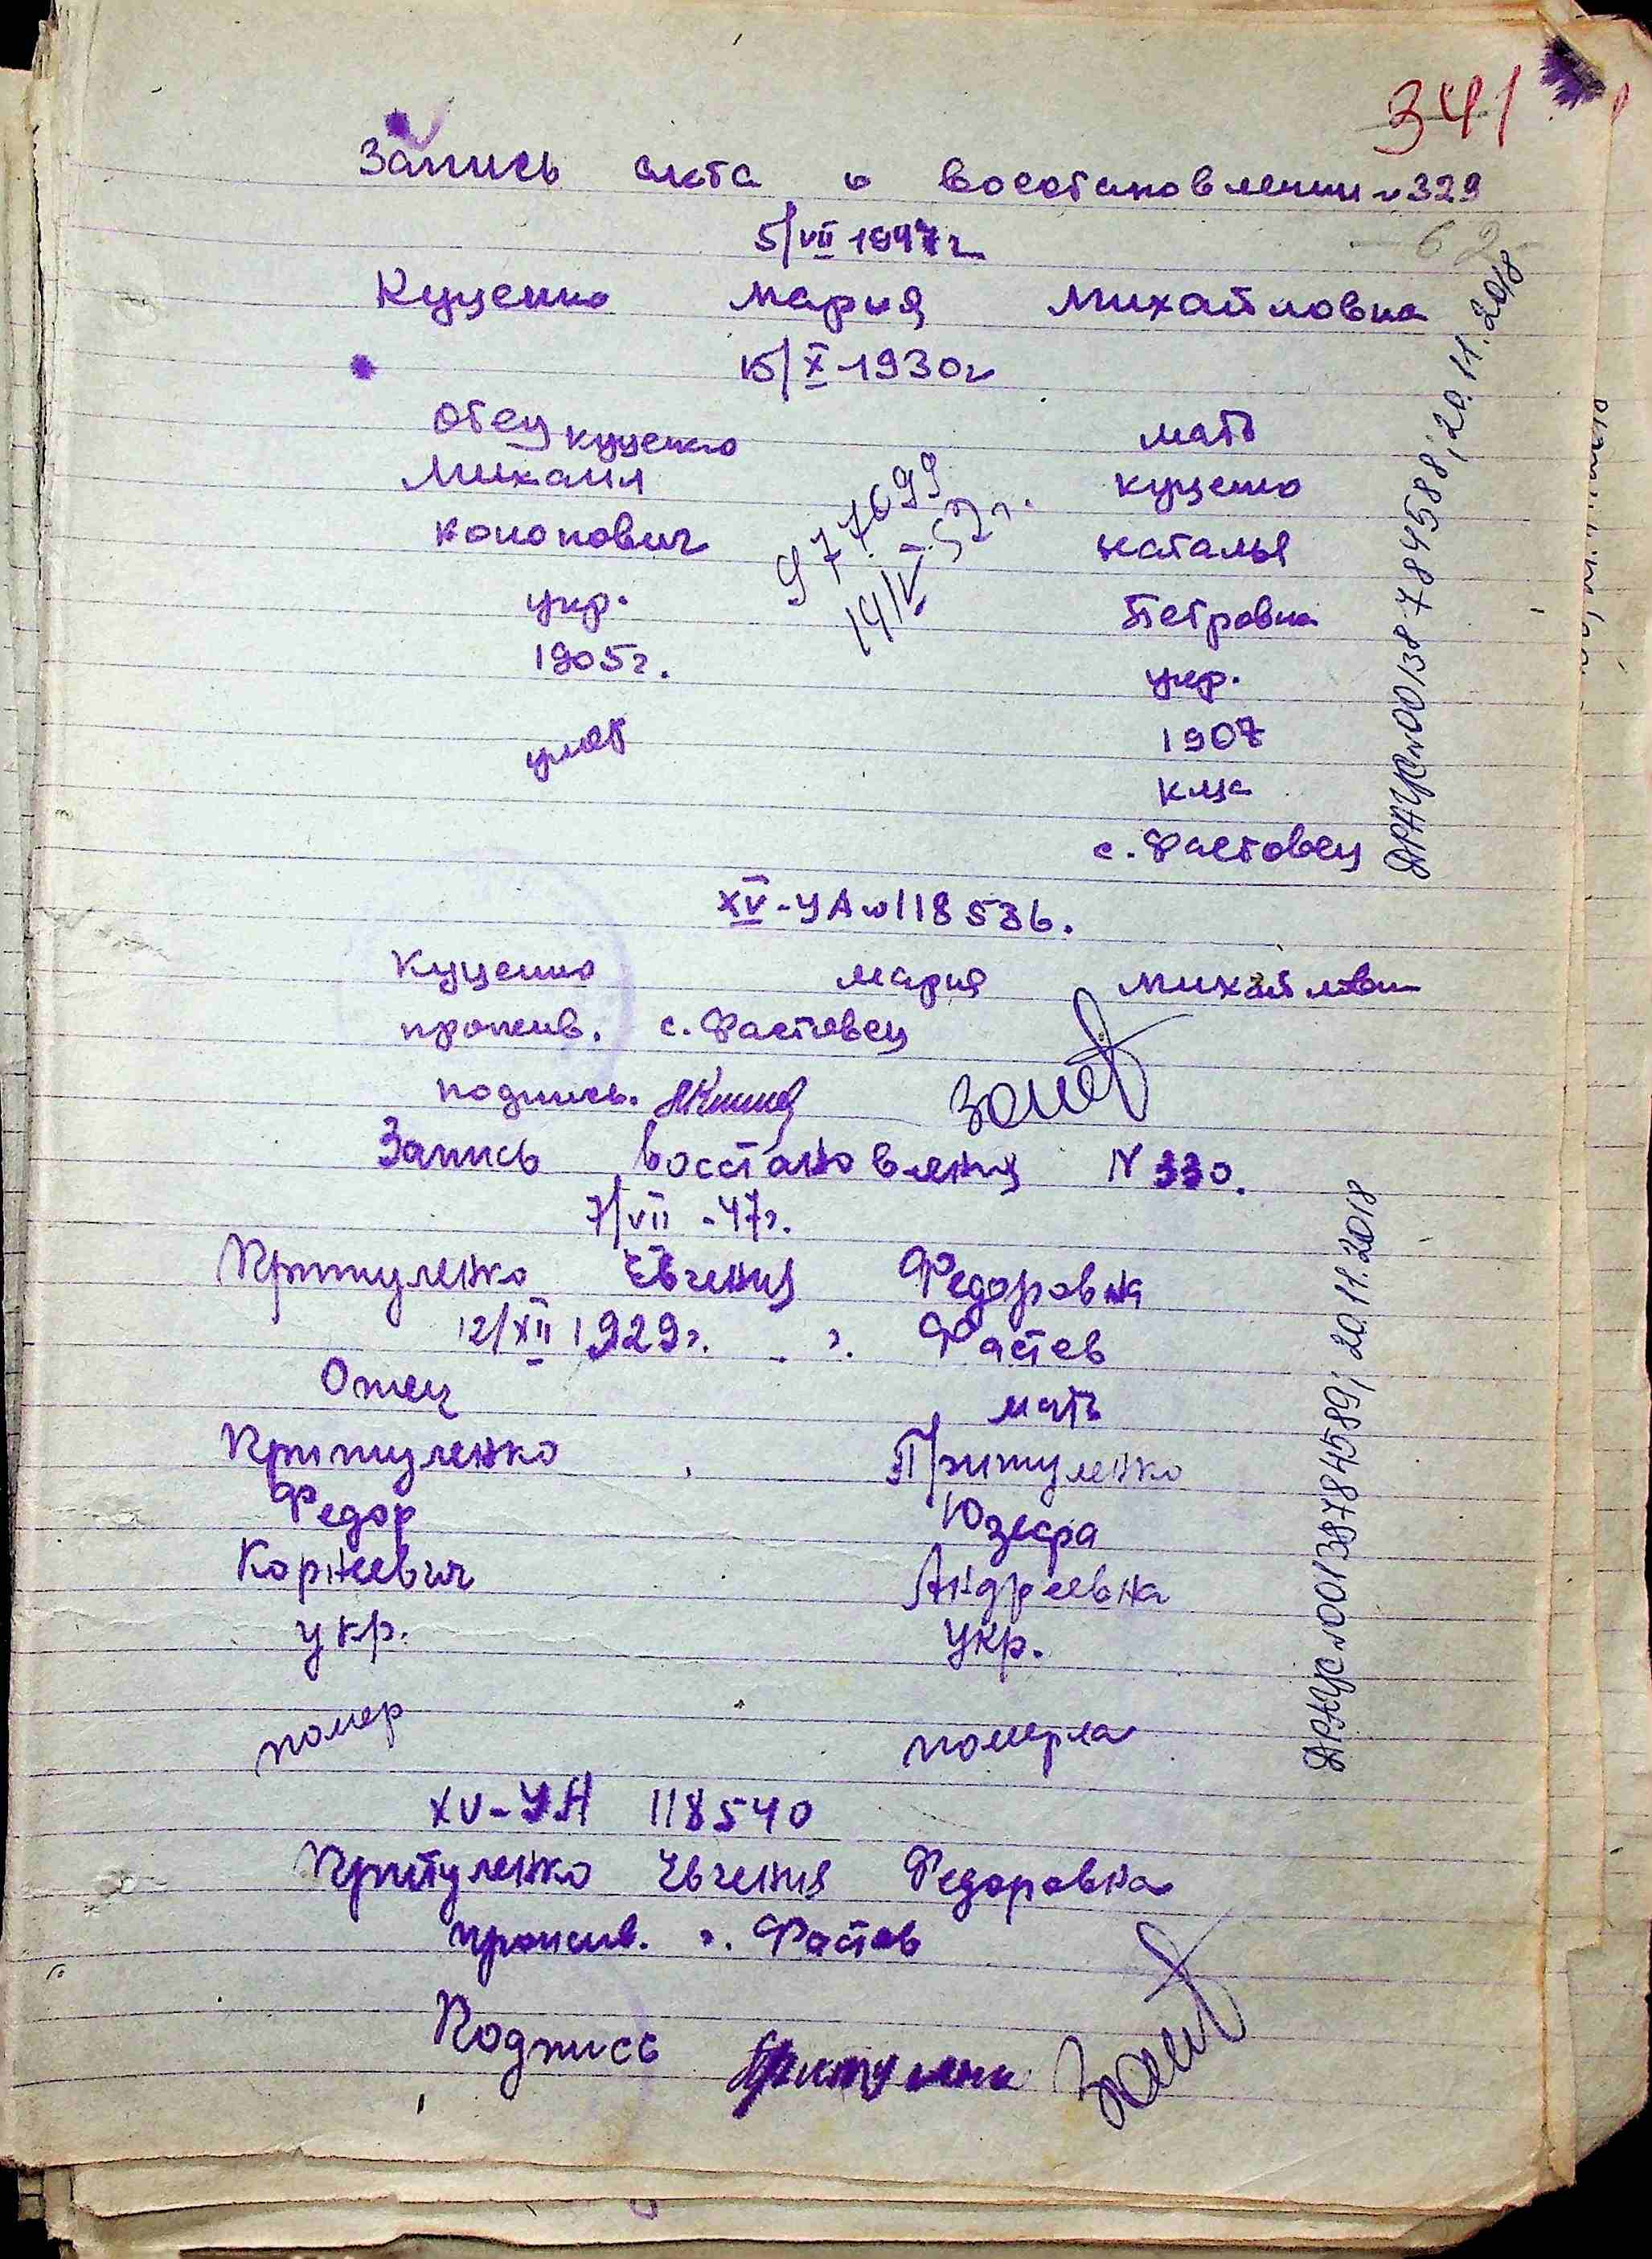 341
Запись акта о восстановлении №329
62
5/VII 1947г
Куценко Мария Михайловна
15/X-1930г
Отец Куценко мать
Михаил Куценко
Кононович Наталья
укр. Петровна
1905г. укр.
умер 1907
к-ца
с. Фастовец
977699
14/V-52г.
XV-УА №118536.
Куценко Мария Михайловна
прожив. с. Фастовец
подпись.
Запись восстановления N 330.
7/VII-47г.
Притуленко Евгения Федоровна
12/XII 1929г. г. Фастов
Отец мать
Притуленко Притуленко
Федор Юзефа
Корнеевич Андреевна
укр. укр.
помер померла
XV-УА 118540
Притуленко Евгения Федоровна
прожив. г. Фастов
Подпись Притуленко
ДРАЦС №00138784588; 20.11.2018
ДРАЦС №00138784589; 20.11.2018